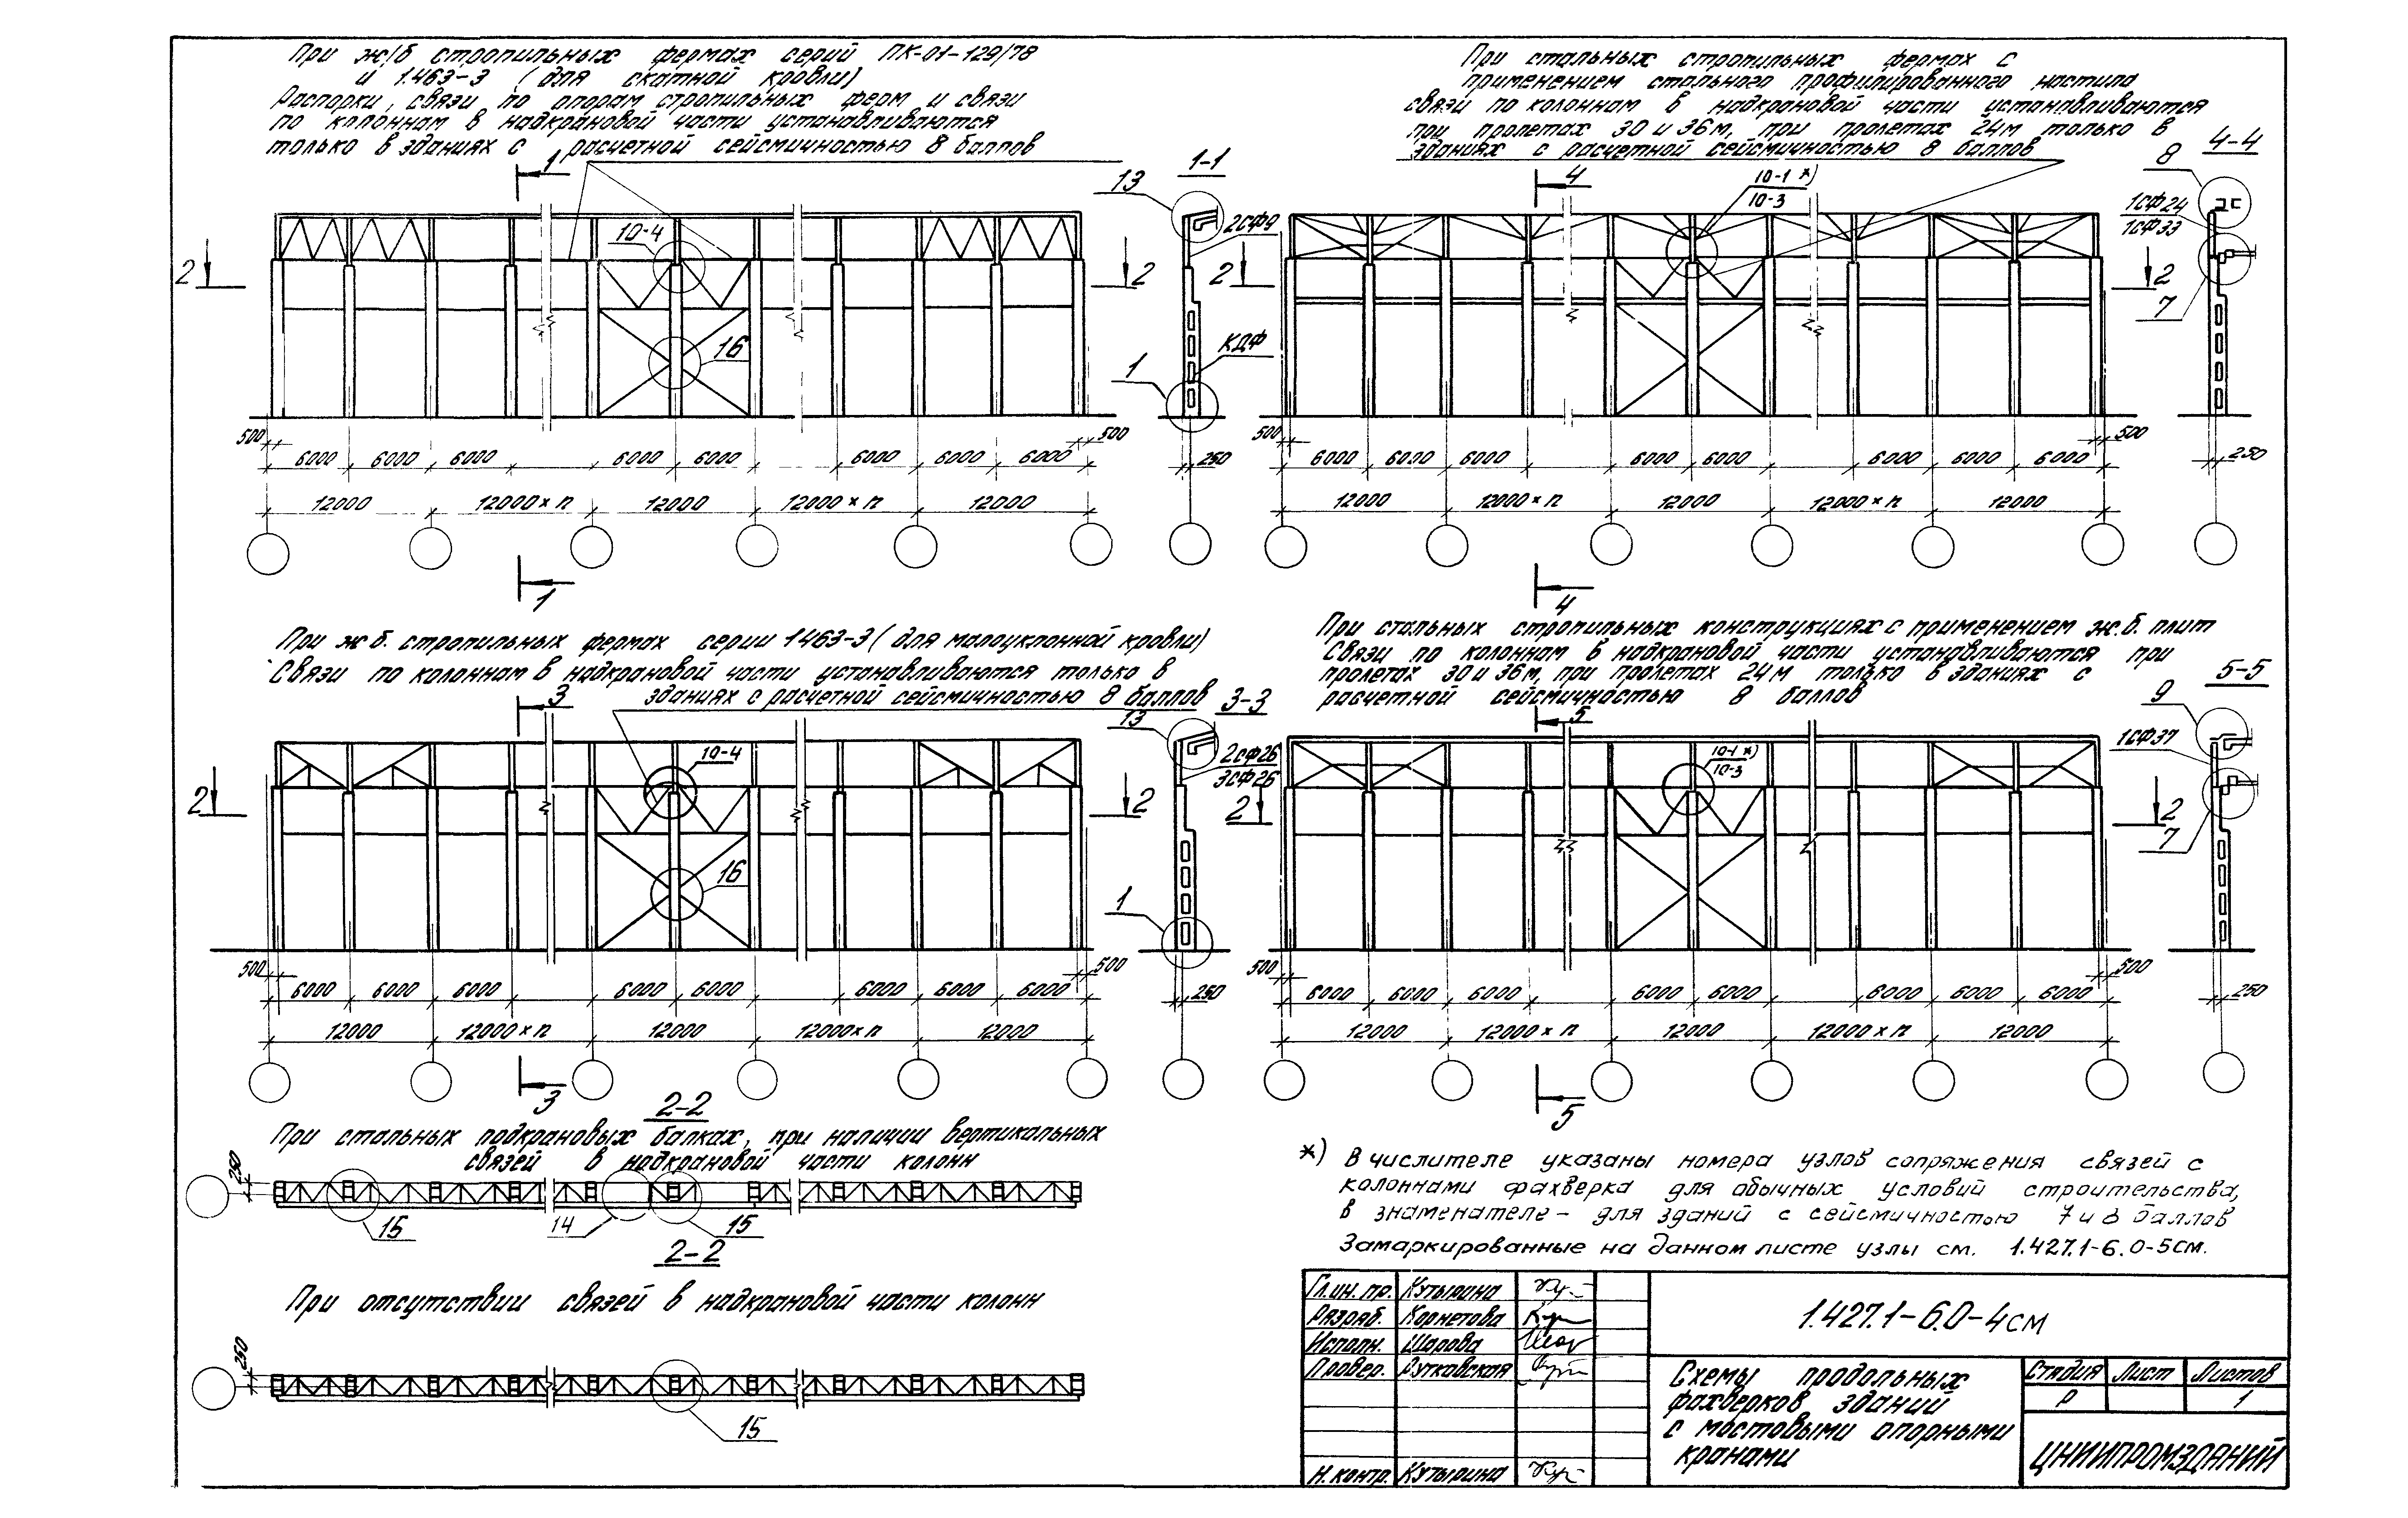 При ж/б стропильных фермах серий ПК-01-129/78
и 1.463-3 (для скатной кровли)
Распорки, связи по опорам стропильных ферм и связи
по колоннам в надкрановой части устанавливаются
только в зданиях с расчетной сейсмичностью 8 баллов
1
1-1
13
2СФ9
10-4
2
2
16
КДФ
1
500
500
6000 6000 6000 6000 6000 6000 6000 6000
250
12000 12000×п 12000 12000×п 12000
1
При стальных стропильных фермах с
применением стального профилированного настила
связи по колоннам в надкрановой части устанавливаются
при пролетах 30 и 36 м, при пролетах 24 м только в
зданиях с расчетной сейсмичностью 8 баллов
8
4-4
4
10-1 *)
10-3
1СФ24
1СФ33
2
2
7
500
500
6000 6000 6000 6000 6000 6000 6000 6000
250
12000 12000×п 12000 12000×п 12000
4
При ж.б. стропильных фермах серии 1463-3 (для малоуклонной кровли)
Связи по колоннам в надкрановой части устанавливаются только в
зданиях с расчетной сейсмичностью 8 баллов
3
3-3
13
2СФ26
3СФ26
10-4
2
2
16
1
500
500
6000 6000 6000 6000 6000 6000 6000 6000
250
12000 12000×п 12000 12000×п 12000
3
При стальных стропильных конструкциях с применением ж.б. плит
Связи по колоннам в надкрановой части устанавливаются при
пролетах 30 и 36 м, при пролетах 24 м только в зданиях с
расчетной сейсмичностью 8 баллов
5-5
9
5
10-1 *)
10-3
1СФ37
2
2
7
500
500
6000 6000 6000 6000 6000 6000 6000 6000
250
12000 12000×п 12000 12000×п 12000
5
2-2
При стальных подкрановых балках, при наличии вертикальных
связей в надкрановой части колонн
250
15
14
15
2-2
При отсутствии связей в надкрановой части колонн
250
15
*) В числителе указаны номера узлов сопряжения связей с
колоннами фахверка для обычных условий строительства,
в знаменателе – для зданий с сейсмичностью 7 и 8 баллов
Замаркированные на данном листе узлы см. 1.427.1-6.0-5см.
Гл.ин.пр. Кутырина
Разраб. Корнетова
Исполн. Шарова
Провер. Рутковская
Н.контр. Кутырина
1.427.1-6.0-4см
Схемы продольных
фахверков зданий
с мостовыми опорными
кранами
Стадия Лист Листов
Р 1
ЦНИИПРОМЗДАНИЙ